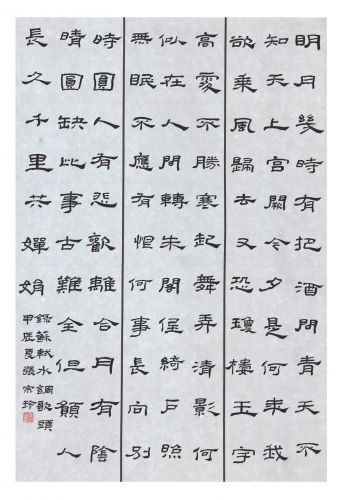 明月幾時有把酒問青天不
知天上宮闕今夕是何年我
欲乘風歸去又恐瓊樓玉宇
高處不勝寒起舞弄清影何
似在人間轉朱閣低綺戶照
無眠不應有恨何事長向別
時圓人有悲歡離合月有陰
晴圓缺此事古難全但願人
長久千里共嬋娟
錄蘇軾水調歌頭
甲辰夏張宗玲